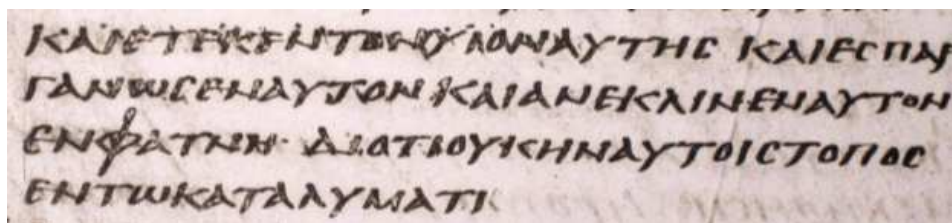 ΚΑΙΕΤΕΚΕΝΤΟΝΥΙΟΝΑΥΤΗC ΚΑΙΕCΠΑΡ
ΓΑΝΩCΕΝΑΥΤΟΝ ΚΑΙΑΝΕΚΛΙΝΕΝΑΥΤΟΝ
ΕΝΦΑΤΝΗ· ΔΙΟΤΙΟΥΚΗΝΑΥΤΟΙCΤΟΠΟC
ΕΝΤΩΚΑΤΑΛΥΜΑΤΙ